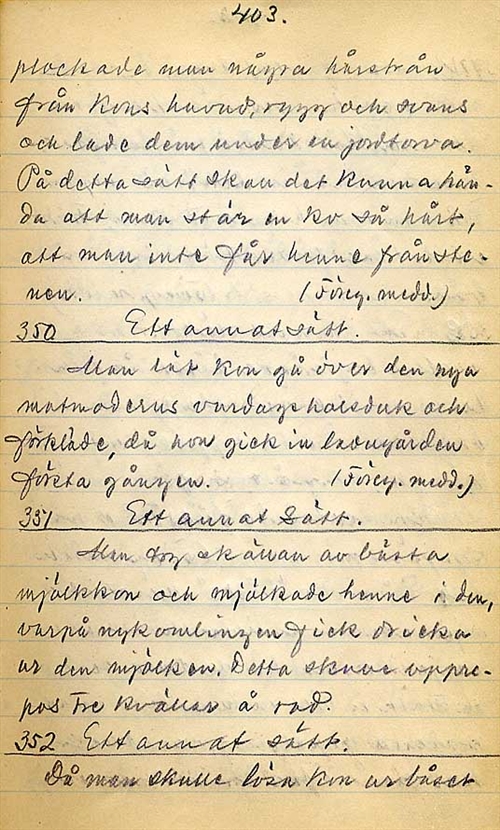 403.
plockade man några hårstrån
från kons huvud, rygg och svans
och lade dem under en jordtorva.
På detta sätt skau det kunna hän-
da att man stär en ko så hårt,
att man inte får henne från ste-
nen. (Föreg. medd.)
350 Ett annat sätt.
Man lät kon gå över den nya
matmoderns vardagshalsduk och
förkläde, då hon gick in ladugården
första gången. (Föreg. medd.)
351 Ett annat sätt.
Man tog skällan av bästa
mjölkkon och mjölkade henne i den,
varpå nykomlingen fick dricka
ur den mjölken. Detta skulle uppre-
pas tre kvällar å rad.
352 Ett annat sätt.
Då man skulle lösa kon ur båset